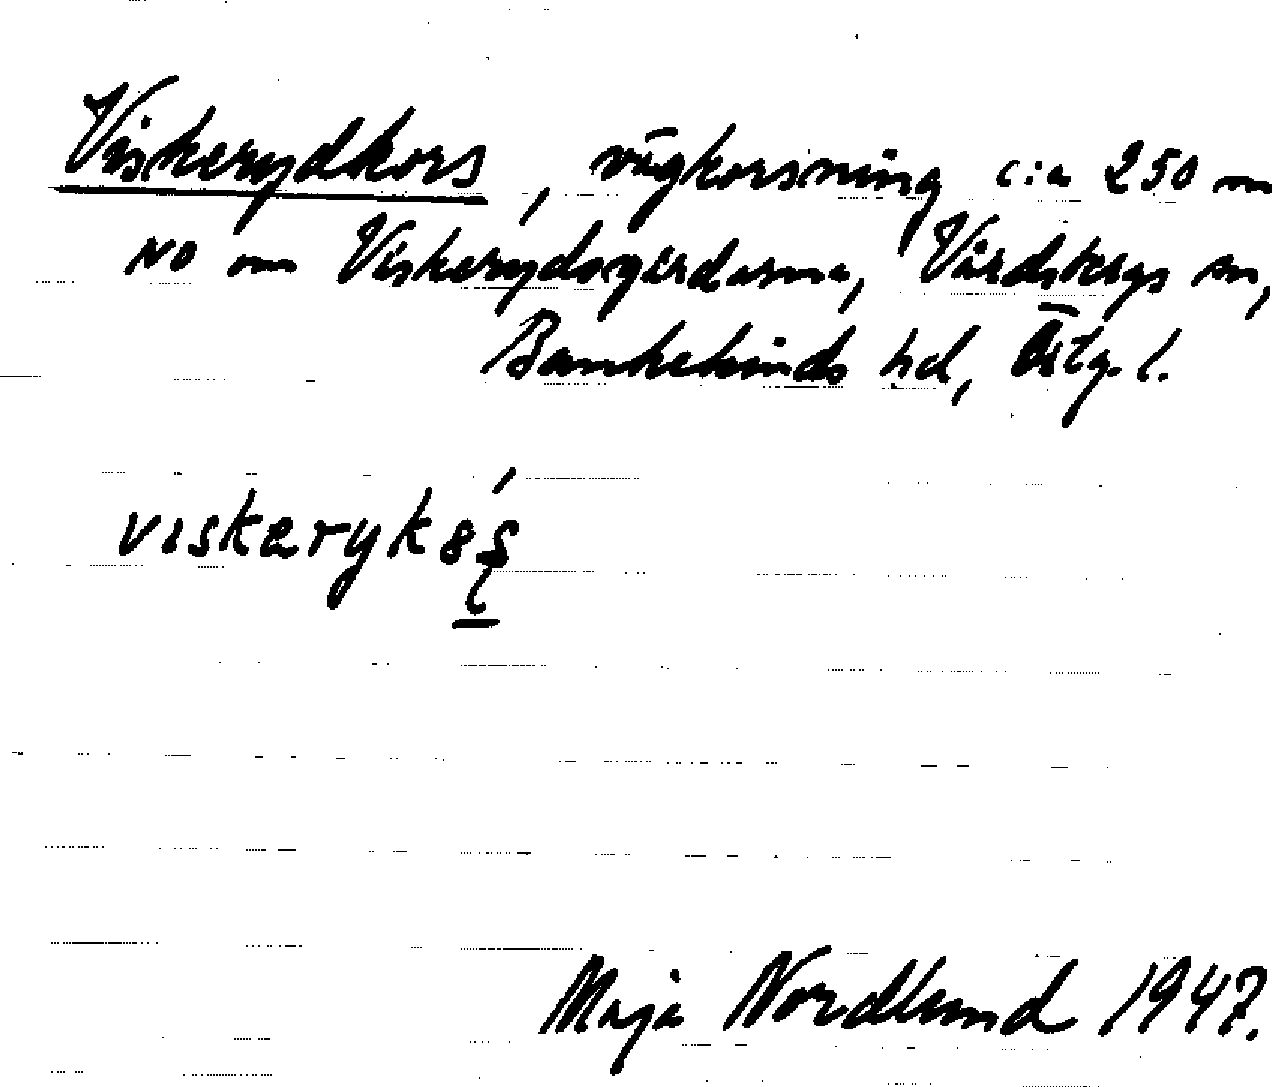 Viskerydkors, vägkorsning c:a 250 m
NO om Viskerydsgårdarna, Vårdsbergs sn,
Bankekinds hd, Östg. l.
viskaryk
Maja Nordlund 1947.